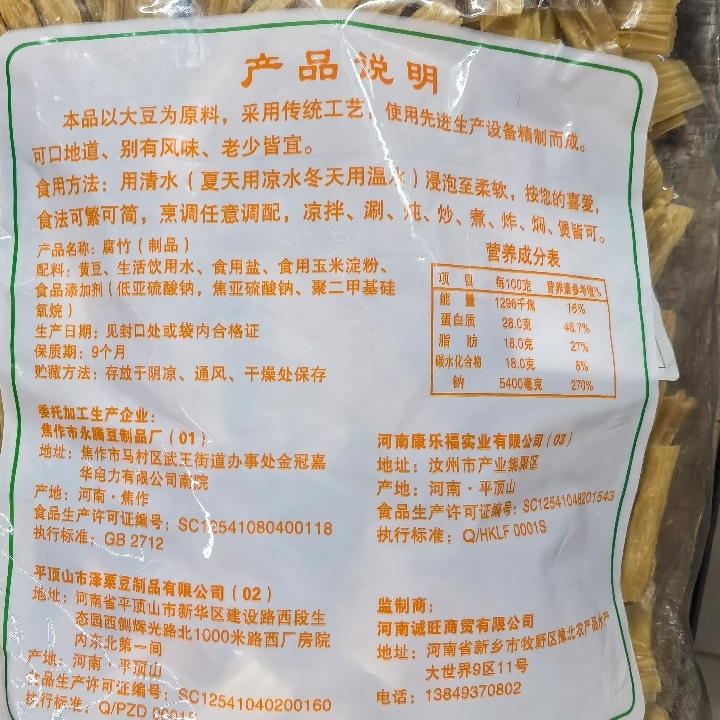 产品说明
本品以大豆为原料，采用传统工艺，使用先进生产设备精制而成。
可口地道、别有风味、老少皆宜。
食用方法：用清水（夏天用凉水冬天用温水）浸泡至柔软，按您的喜爱，
食法可繁可简，烹调任意调配，凉拌、涮、炖、炒、煮、炸、焖、煲皆可。
产品名称：腐竹（制品）
配料：黄豆、生活饮用水、食用盐、食用玉米淀粉、
食品添加剂（低亚硫酸钠，焦亚硫酸钠、聚二甲基硅
氧烷）
生产日期：见封口处或袋内合格证
保质期：9个月
贮藏方法：存放于阴凉、通风、干燥处保存
营养成分表
项 目 每100克 营养素参考值%
能 量 1296千焦 15%
蛋白质 28.0克 46.7%
脂 肪 16.0克 27%
碳水化合物 18.0克 6%
钠 5400毫克 270%
委托加工生产企业：
焦作市永腾豆制品厂（01）
地址：焦作市马村区武王街道办事处金冠嘉
华电力有限公司南院
产地：河南·焦作
食品生产许可证编号：SC12541080400118
执行标准：GB 2712
河南康乐福实业有限公司（03）
地址：汝州市产业集聚区
产地：河南·平顶山
食品生产许可证编号：SC12541048201543
执行标准：Q/HKLF 0001S
平顶山市泽栗豆制品有限公司（02）
地址：河南省平顶山市新华区建设路西段生
态园西侧辉光路北1000米路西厂房院
内东北第一间
产地：河南·平顶山
食品生产许可证编号：SC12541040200160
执行标准：Q/PZD 0001S
监制商：
河南诚旺商贸有限公司
地址：河南省新乡市牧野区豫北农产品水产
大世界9区11号
电话：13849370802